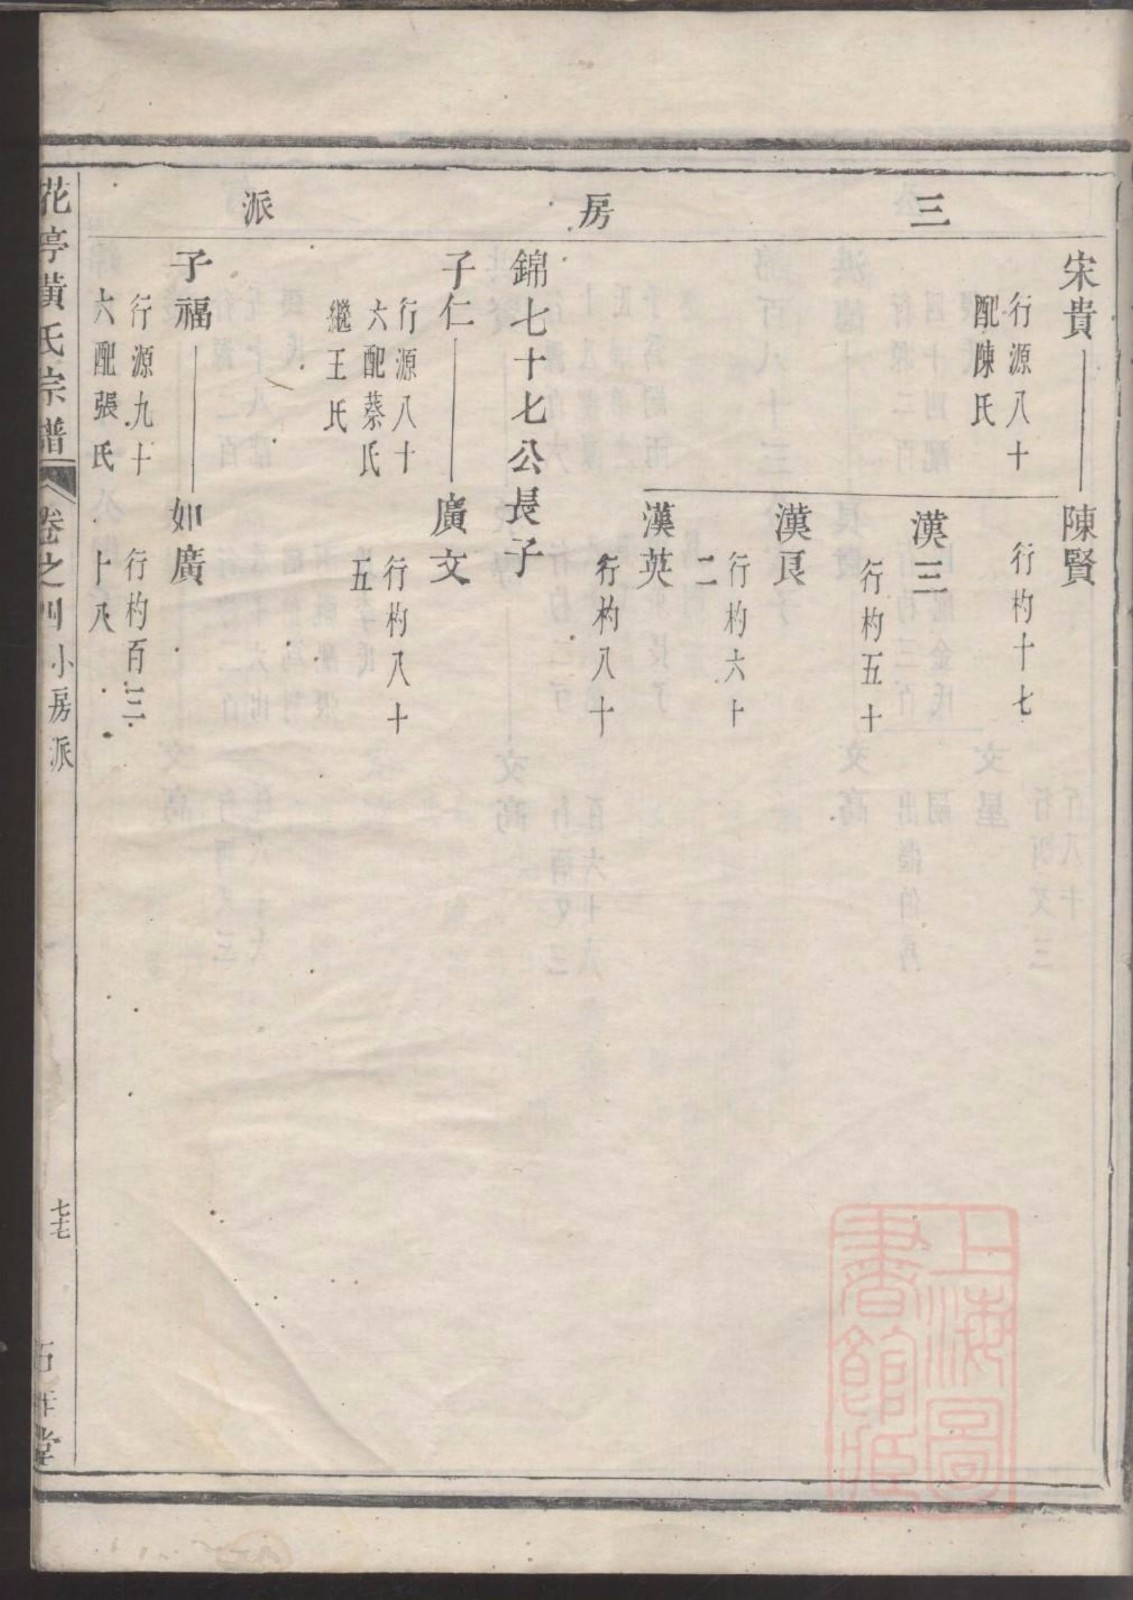 三房派
宋貴
行源八十
配陳氏
陳賢
行杓十七
漢三
行杓五十
漢艮
行杓六十
二
漢英
行杓八十
錦七十七公長子
子仁
行源八十
六配蔡氏
繼王氏
廣文
行杓八十
五
子福
行源九十
六配張氏
如廣
行杓百三
十八
花亭黃氏宗譜
卷之四
小房派
七十七
堂
上海圖
書館臧